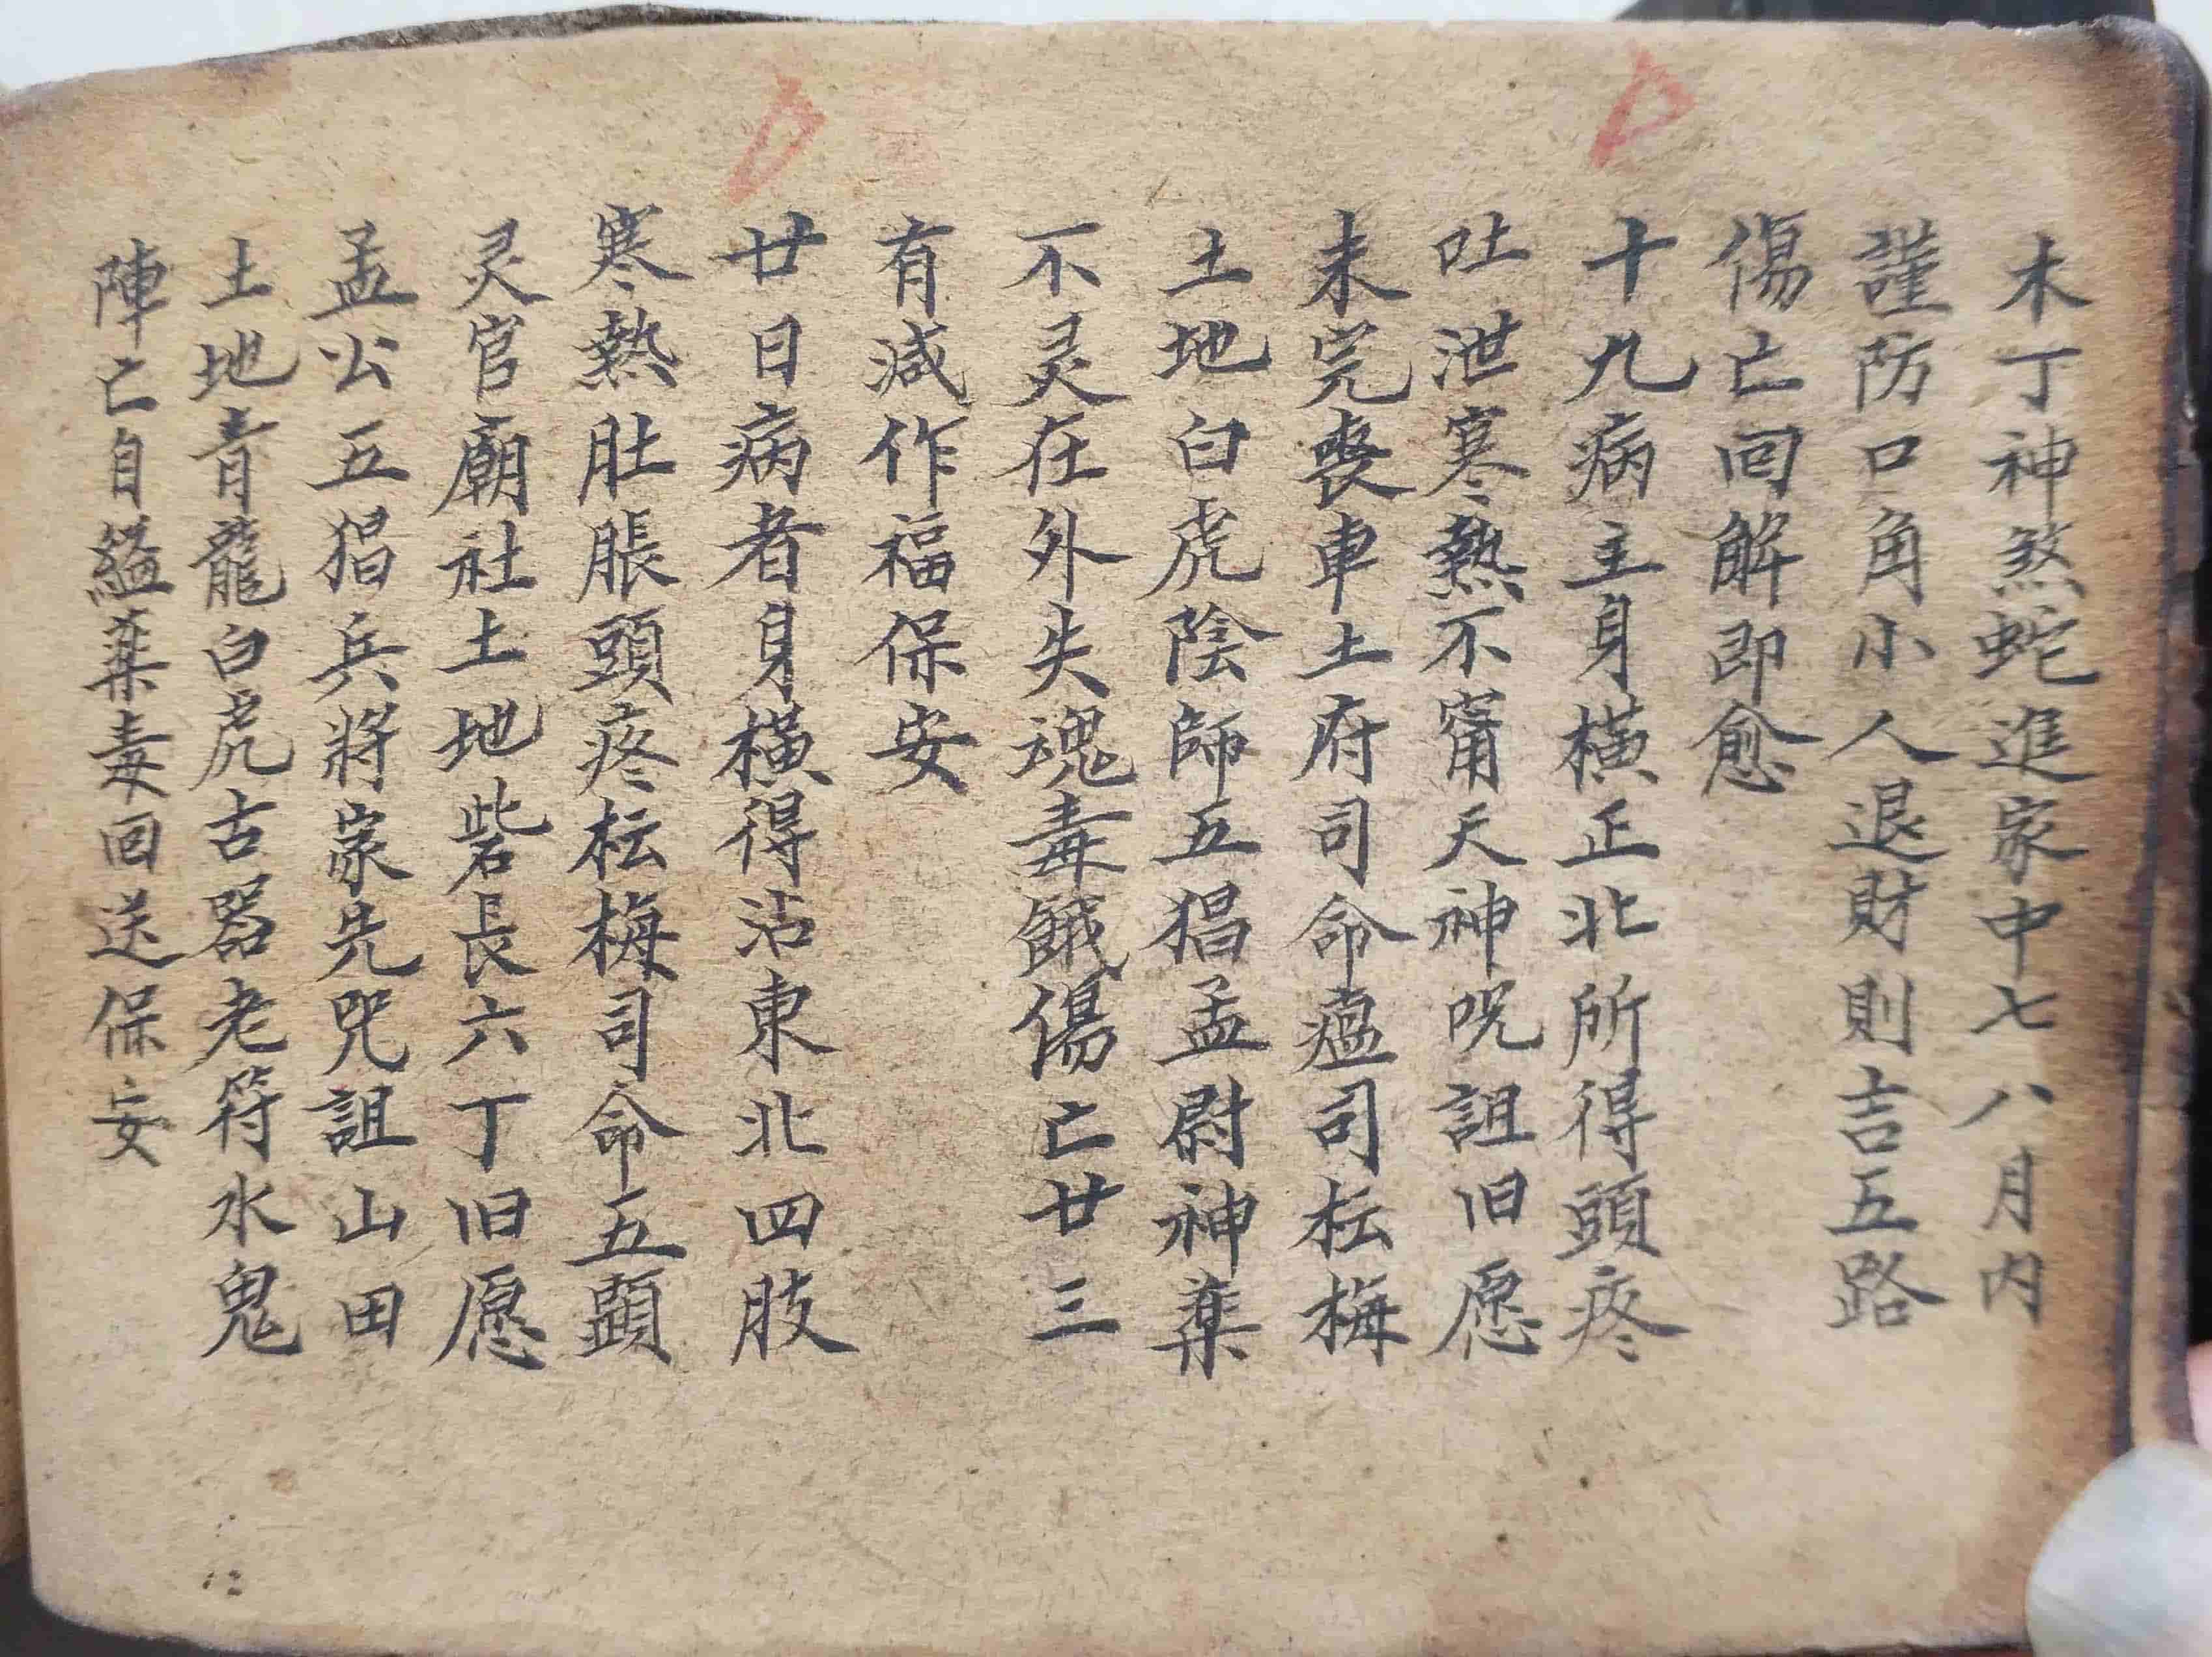 木丁神煞蛇進家中七八月内
謹防口角小人退財則吉五路
傷亡回解即愈
十九病主身橫正北所得頭疼
吐泄寒熱不甯天神呪詛旧愿
未完喪車土府司命瘟司枟梅
土地白虎陰師五猖孟尉神藥
不灵在外失魂毒餓傷亡廿三
有減作福保安
廿日病者身橫得沾東北四肢
寒熱肚脹頭疼枟梅司命五顕
灵官廟社土地砦長六丁旧愿
孟公五猖兵將家先咒詛山田
土地青龍白虎古器老符水鬼
陣亡自縊藥毒回送保安